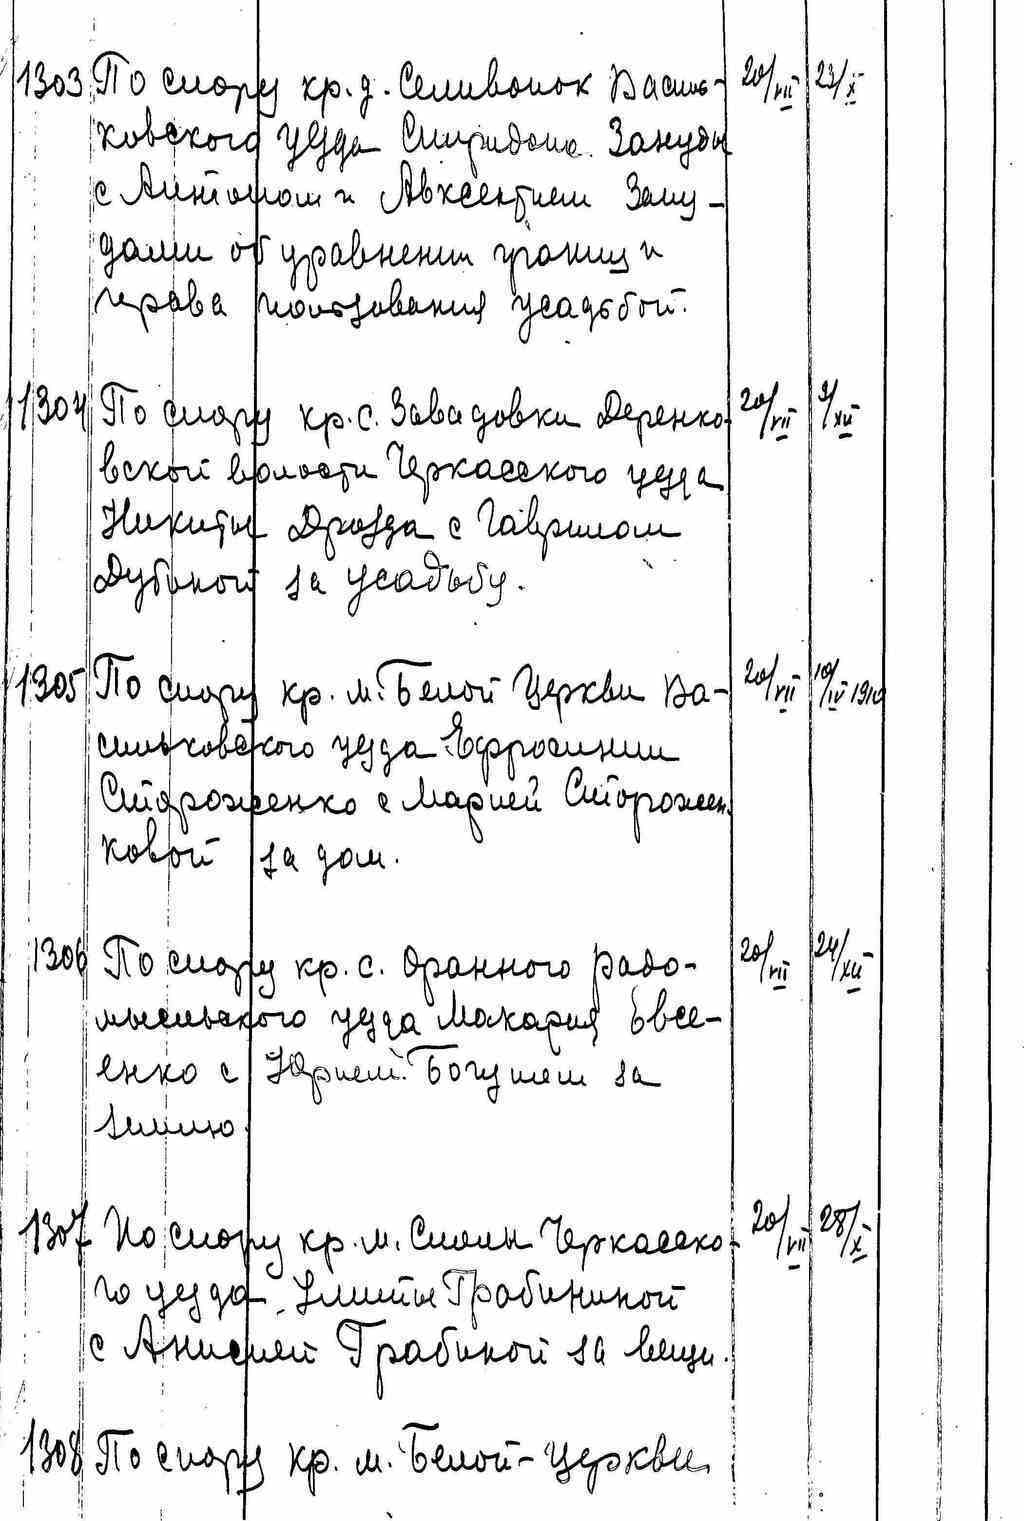 1303 По спору кр. д. Селивонок Василь- 20/VII 23/X
ковского уезда Спиридона Зануды
с Антоном и Авксентием Зану-
дами об уравнении границ и
права пользования усадьбой.
1304 По спору кр. с. Завадовки Деренко- 20/VII 9/XII
вской волости Черкасского уезда
Никиты Дрозда с Гаврилом
Дубиной за усадьбу.
1305 По спору кр. м. Белой Церкви Ва- 20/VII 10/IV 1910
сильковского уезда Ефросинии
Стороженко с Марией Сторожен
ковой за дом.
1306 По спору кр. с. Оранного Радо- 20/VII 24/XII
мысльского уезда Макария Евсе-
енко с Юрием Богушем за
землю.
1307 По спору кр. м. Смелы Черкасско- 20/VII 28/X
го уезда Улиты Грабининой
с Анисией Грабиной за вещи.
1308 По спору кр. м. Белой-Церкви